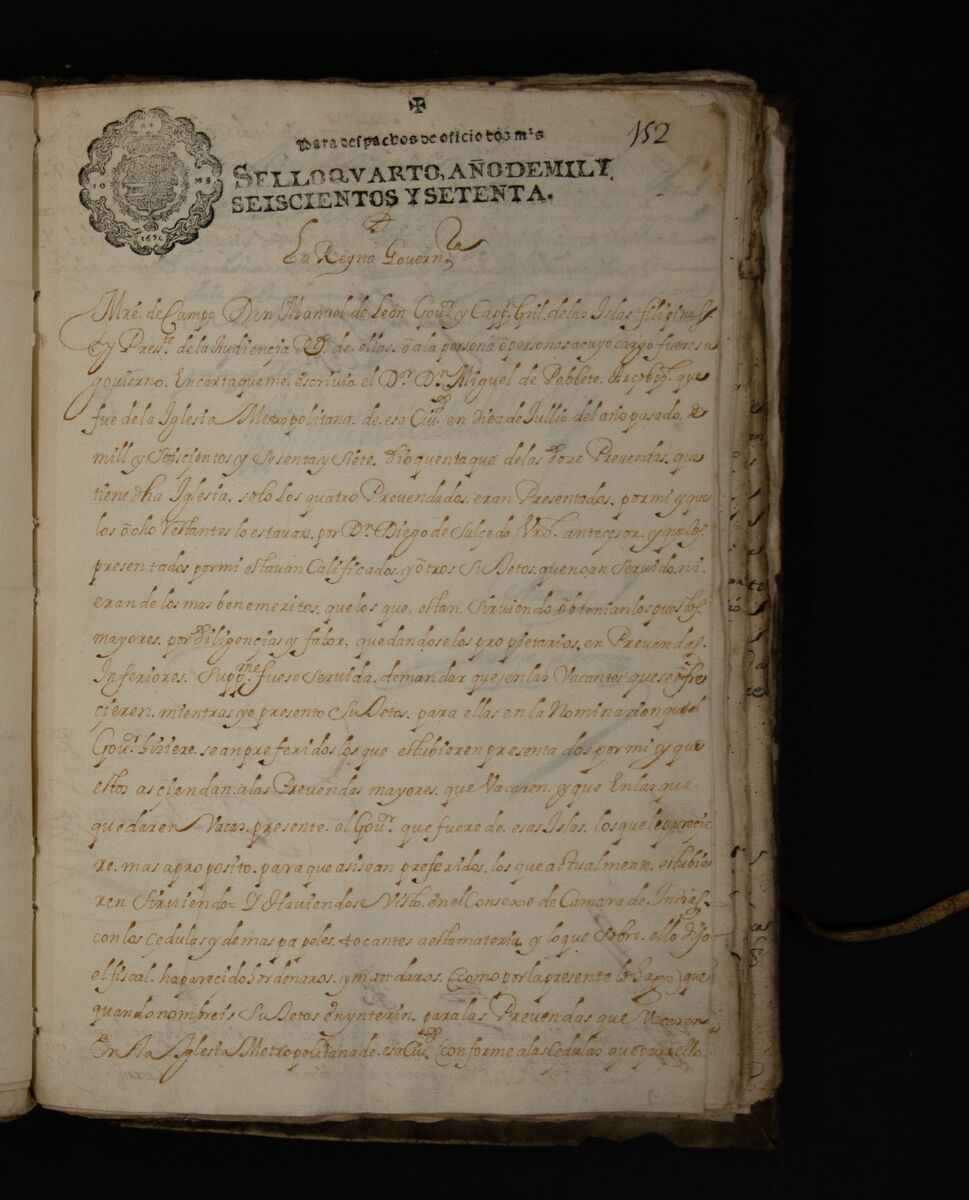 ✠
152
Para despachos de oficio dos mrs
SELLO QVARTO, AÑO DE MIL Y
SEISCIENTOS Y SETENTA.
1670
La Reyna Governra
Mre. de Campo Don Manuel de Leon Govor. y Cappn. Gnl. de las Islas filipinas
y Preste. de la Audiencia Rl. de ellas. ō a la persona ō personas a cuyo cargo fuere su
govierno. En carta que me. escrivio. el Dr. Dn. Miguel de Poblete. Arcobpo. que
fue de la Iglesia Metropolitana. de. esa Ciud. en Diez de Jullio del año pasado. de
mill y Seiscientos y Sesenta y Siete. dio quenta que de las doze Prevendas. que
tiene dha Iglesia. solo los quatro Prevendados. eran Presentados. por mi y que
los ōcho restantes lo estavan. por Dn. Diego de Salcedo Vro. antecesor. y que los
presentados por mi estavan Calificados. y ōtros Sujetos. que no an Servido. ni
eran de los mas benemeritos. que los que. estan. Sirviendo ōbtenian los puestos
mayores. por diligencias y fabor. quedandose los propietarios. en Prevendas.
Inferiores. Suppme. fuese Servida. de mandar que en las Vacantes que se ōfre
cieren. mientras yo presento Sujetos. para ellas en la Nominazion que el
Govor. hiziere. sean preferidos los que estubieren presentados por mi y que
estos asciendan. a las Prevendas mayores. que Vacaren. y que En las que
quedaren Vacas. presente. el Govor. que fuere de. esas Islas. los que le parecie
re. mas a proposito. para que asi sean preferidos. los que actualmente. estubie
ren Sirviendo= Y Haviendose Visto. en el Consexo de Camara de. Indias.
con las cedulas y demas papeles. tocantes a esta materia y lo que Sobre. ello dijo
el fiscal. ha parecido hordenaros. y mandaros. (como por la presente lo hago) que
quando nombreis Sujetos en ynterin. para las Prevendas que Vacaren
En la Iglesia Metropolitana de. esa Ciud. (conforme a las cedulas que para ello.